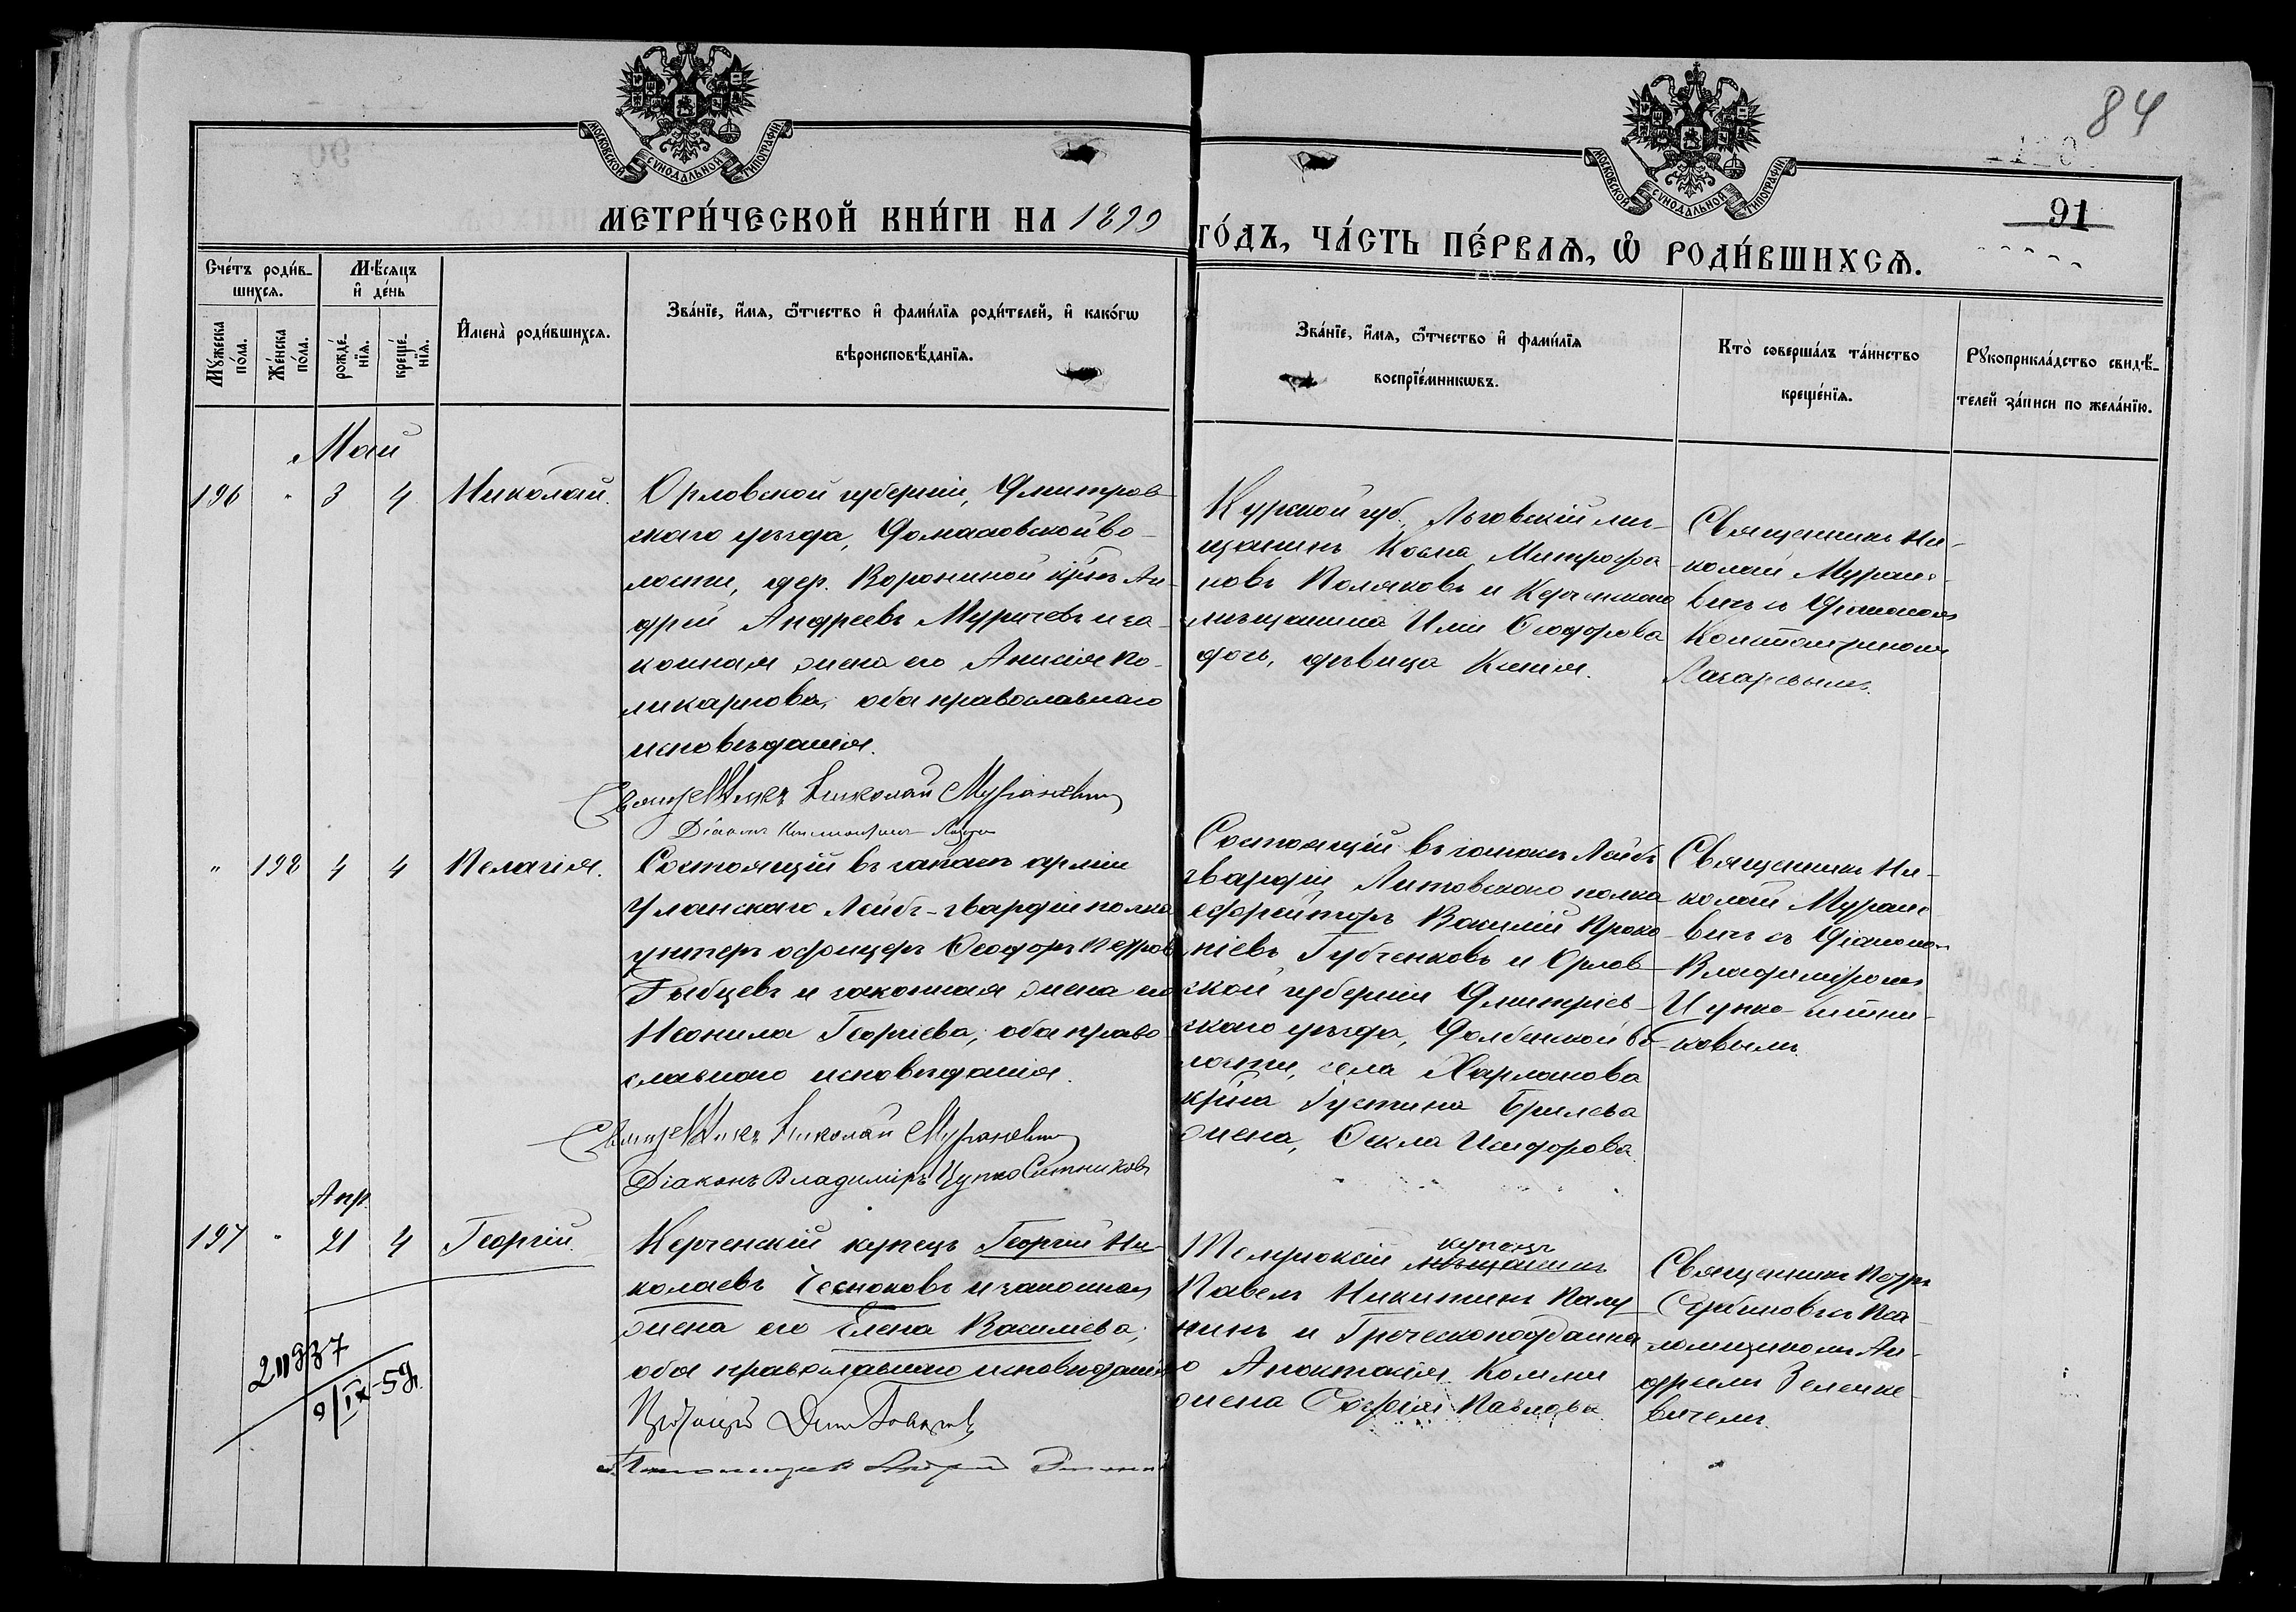 84
91
МОСКОВСКОЙ СѴНОДАЛЬНОЙ ТИПОГРАФІИ
МОСКОВСКОЙ СѴНОДАЛЬНОЙ ТИПОГРАФІИ
МЕТРИ́ЧЕСКОЙ КНИ́ГИ НА 1899
ГО́ДЪ, ЧА́СТЬ ПЕ́РВАѦ, Ѡ҆ РОДИ́ВШИХСѦ.
Сче́тъ роди́в-
шихсѧ.
Мѣ́сѧцъ
и҆ де́нь
Мꙋ́жеска
по́ла.
Же́нска
по́ла.
рожде́-
нїѧ.
креще́-
нїѧ.
И҆мена̀ роди́вшихсѧ.
Зва́нїе, и҆́мѧ, ѻ҆́тчество и҆ фами́лїѧ роди́телей, и҆ како́гѡ
вѣроисповѣ́данїѧ.
Зва́нїе, и҆́мѧ, ѻ҆́тчество и҆ фами́лїѧ
воспрїе́мникѡвъ.
Кто̀ соверша́лъ та́инство
креще́нїѧ.
Рꙋкоприкла́дство свидѣ́-
телей за́писи по жела́нїю.
Май
196 " 3 4 Николай.
Орловской губерніи, Дмитров-
скаго уѣзда, Домаховской во-
лости, дер. Ворониной кр͠нъ Ан-
дрей Андреевъ Муричевъ и за-
конная жена его Анисія По-
ликарпова, оба православнаго
исповѣданія.
Священникъ Николай Мураневичъ
Діаконъ Константинъ
Курской губ., Льговскій мѣ-
щанинъ Косма Митрофа-
новъ Поляковъ и Керченскаго
мѣщанина Иліи Ѳеодорова
дочь, дѣвица Ксенія.
Священникъ Ни-
колай Муране-
вичъ съ Діакономъ
Константиномъ
Лазаревымъ.
" 198 4 4 Пелагія.
Состоящій въ запасѣ арміи
Уланскаго Лейбъ-гвардіи полка
унтеръ офицеръ Ѳеодоръ Петровъ
и законная жена его
Неонила Георгіева, оба право-
славнаго исповѣданія.
Священникъ Николай Мураневичъ
Діаконъ Владиміръ Цупко Ситниковъ
Состоящій въ запасѣ Лейбъ
гвардіи Литовскаго полка
ефрейторъ Василій Проко-
піевъ Губченковъ и Орлов-
ской губерніи Дмитріев-
скаго уѣзда, Долбенской во-
лости, села Харланова
кр͠на Іустина Брилева
жена, Ѳекла Исидорова.
Священникъ Ни-
колай Муране-
вичъ съ Діакономъ
Владиміромъ
Цупко-Ситни-
ковымъ.
Апр.
197 " 21 4 Георгій.
Керченскій купецъ Георгій Ни-
колаевъ Чесноковъ и законная
жена его Елена Василіева,
оба православнаго исповѣданія
211937
9/IX-59г.
купецъ
Темрюкскій мѣщанинъ
Павелъ Никитинъ
и Греческоподданна-
го
жена Софія Павлова.
Священникъ Петръ
съ Пса-
ломщикомъ Ан-
дреемъ Зеленке-
вичемъ.